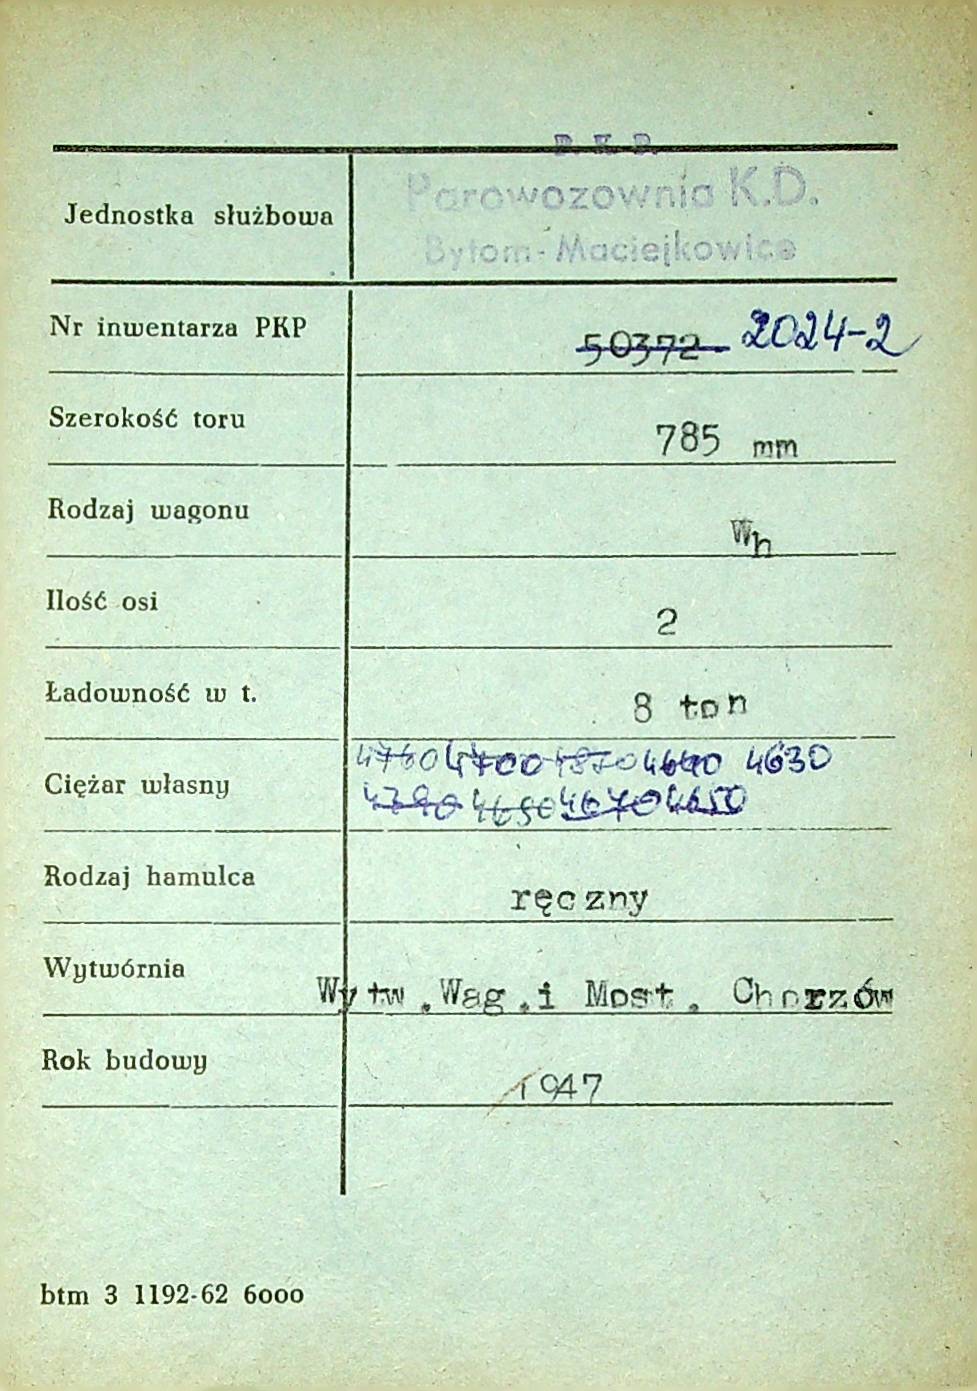 P. K. P.
Parowozownia K.D.
Jednostka służbowa
Bytom-Maciejkowice
Nr inwentarza PKP 50372 2024-2
Szerokość toru 785 mm
Rodzaj wagonu Wh
Ilość osi 2
Ładowność w t. 8 ton
4760 4700 4640 4630
Ciężar własny
4670 4650
Rodzaj hamulca ręczny
Wytwórnia Wytw.Wag.i Most. Chorzów
Rok budowy 1947
btm 3 1192-62 6000